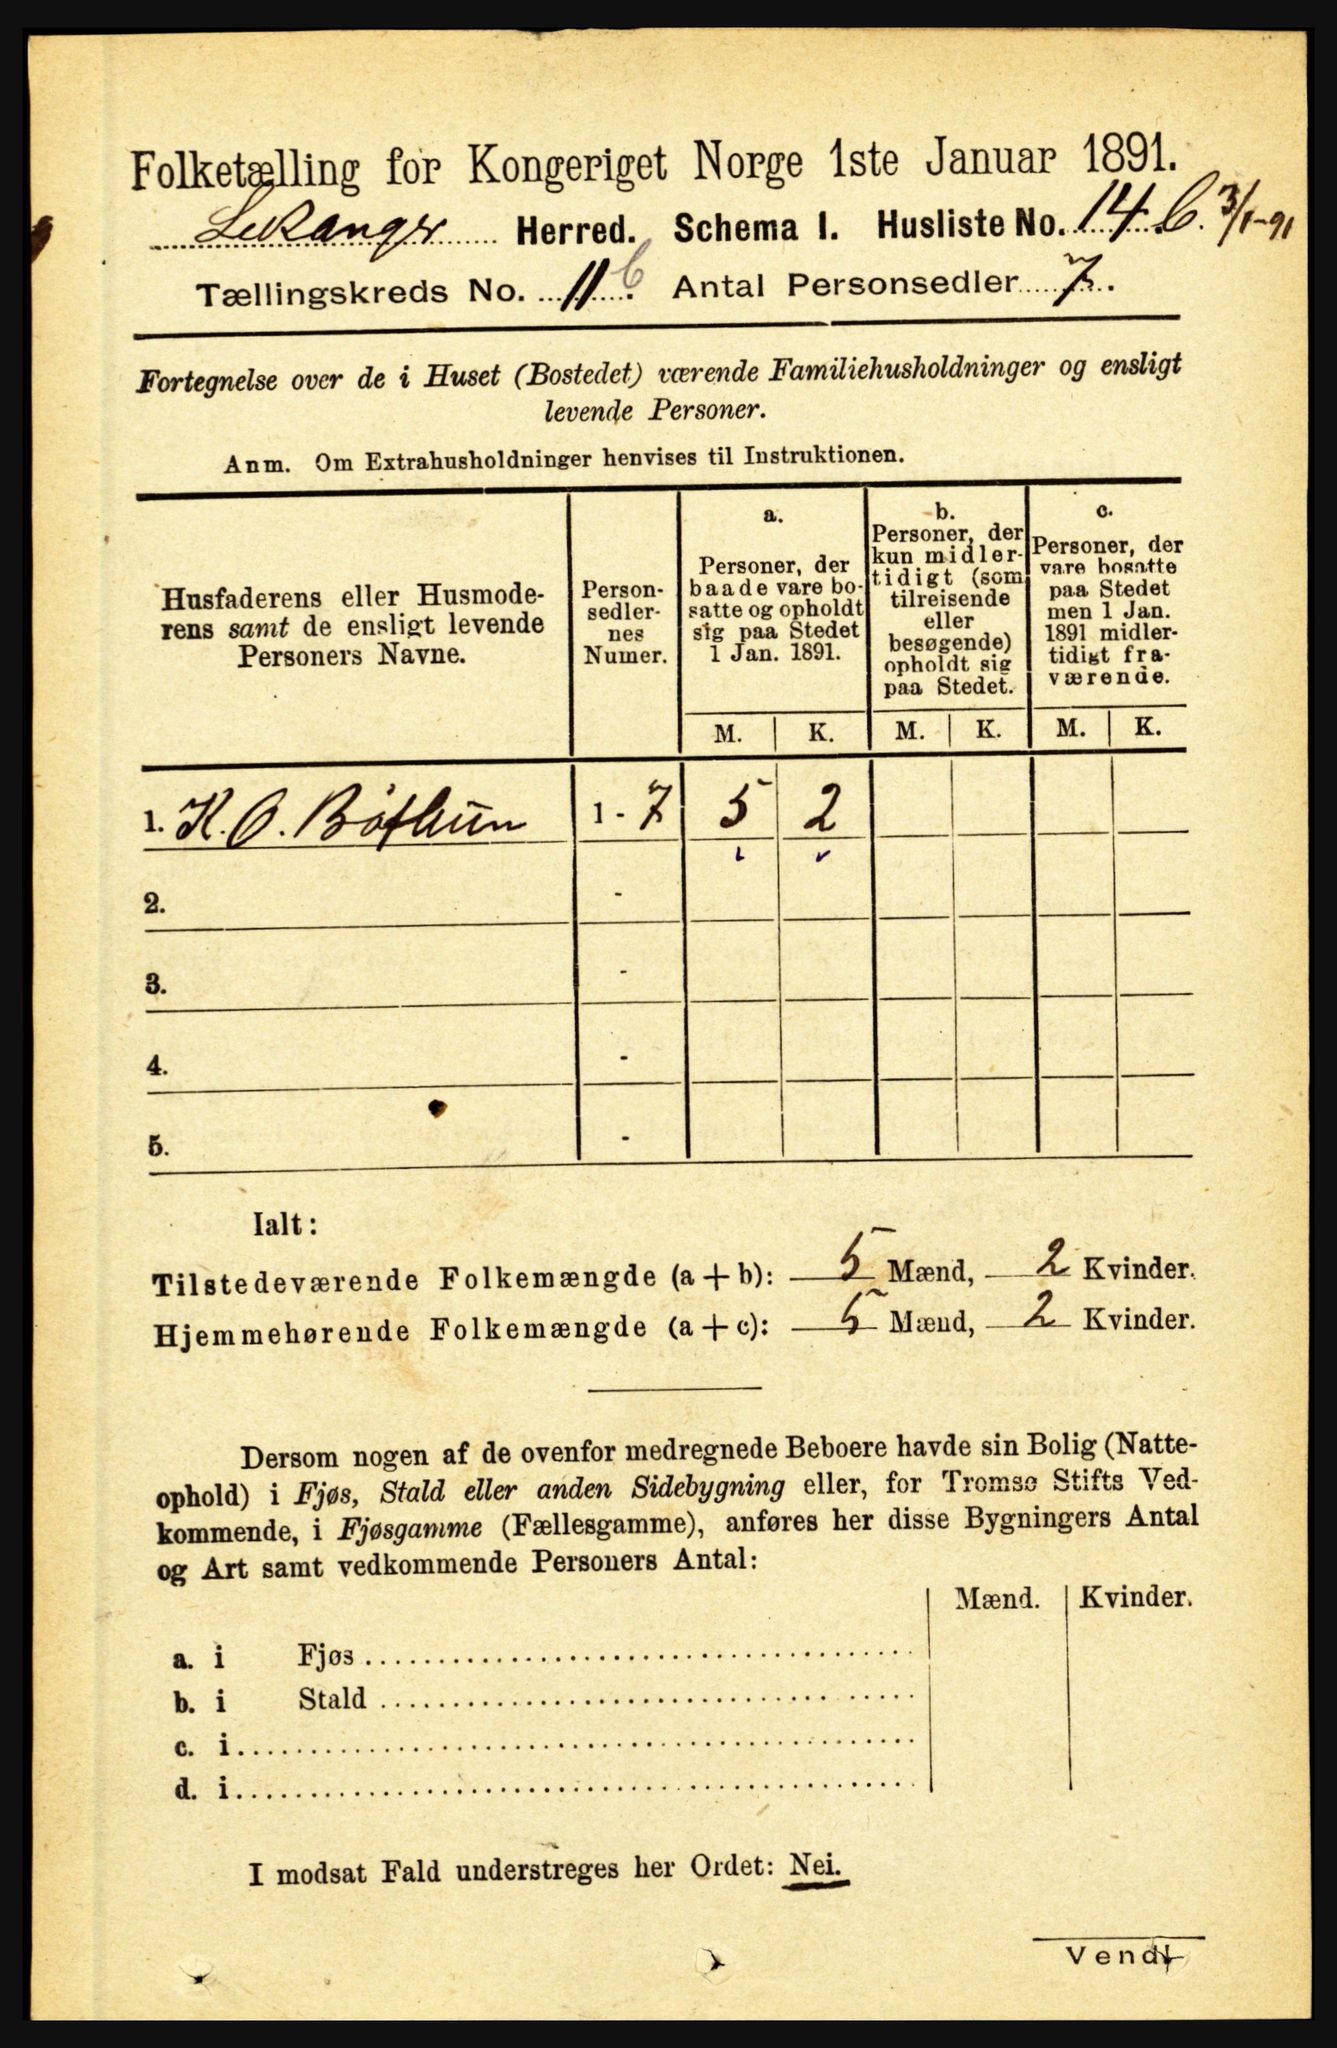 Folketælling for Kongeriget Norge 1ste Januar 1891.
Lekanger Herred. Schema I. Husliste No. 14 b. 3/1-91
Tællingskreds No. 11 b. Antal Personsedler 7.
Fortegnelse over de i Huset (Bostedet) værende Familiehusholdninger og ensligt
levende Personer.
Anm. Om Extrahusholdninger henvises til Instruktionen.
Husfaderens eller Husmode-
rens samt de ensligt levende
Personers Navne.
Person-
sedler-
nes
Numer.
a.
Personer, der
baade vare bo-
satte og opholdt
sig paa Stedet
1 Jan. 1891.
b.
Personer, der
kun midler-
tidigt (som
tilreisende
eller
besøgende)
opholdt sig
paa Stedet.
c.
Personer, der
vare bosatte
paa Stedet
men 1 Jan.
1891 midler-
tidigt fra-
værende.
M. K. M. K. M. K.
1. K. O. Bøthun 1 - 7 5 2
2. -
3. -
4. -
5. -
Ialt:
Tilstedeværende Folkemængde (a + b): 5 Mænd, 2 Kvinder.
Hjemmehørende Folkemængde (a + c): 5 Mænd, 2 Kvinder.
Dersom nogen af de ovenfor medregnede Beboere havde sin Bolig (Natte-
ophold) i Fjøs, Stald eller anden Sidebygning eller, for Tromsø Stifts Ved-
kommende, i Fjøsgamme (Fællesgamme), anføres her disse Bygningers Antal
og Art samt vedkommende Personers Antal:
Mænd. Kvinder.
a. i Fjøs
b. i Stald
c. i
d. i
I modsat Fald understreges her Ordet: Nei.
Vend!